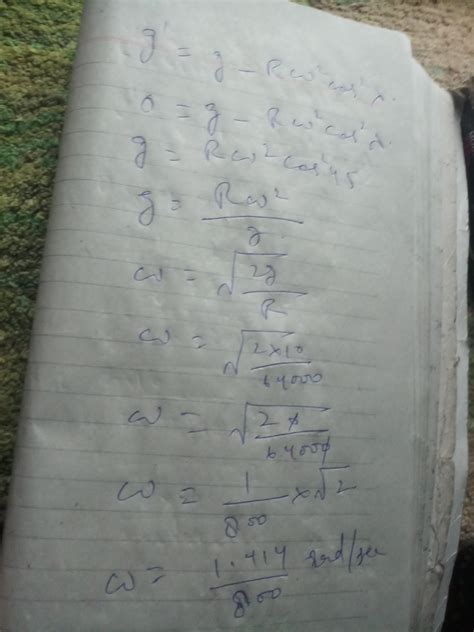 g' = g - Rω²cos²λ.
0 = g - Rω²cos²λ.
g = Rω²cos²45
g = Rω²/2.
ω = √(2g/R)
ω = √(2×10/64000)
ω = √(2×/64000)
ω = 1/800 × √2
ω = 1.414/800 rad/sec